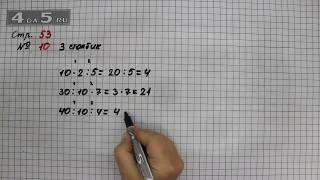 4DA5.RU
Стр. 53
№ 10 3 столбик
1 2
10 · 2 : 5 = 20 : 5 = 4
1 2
30 : 10 · 7 = 3 · 7 = 21
1 2
40 : 10 : 4 = 4